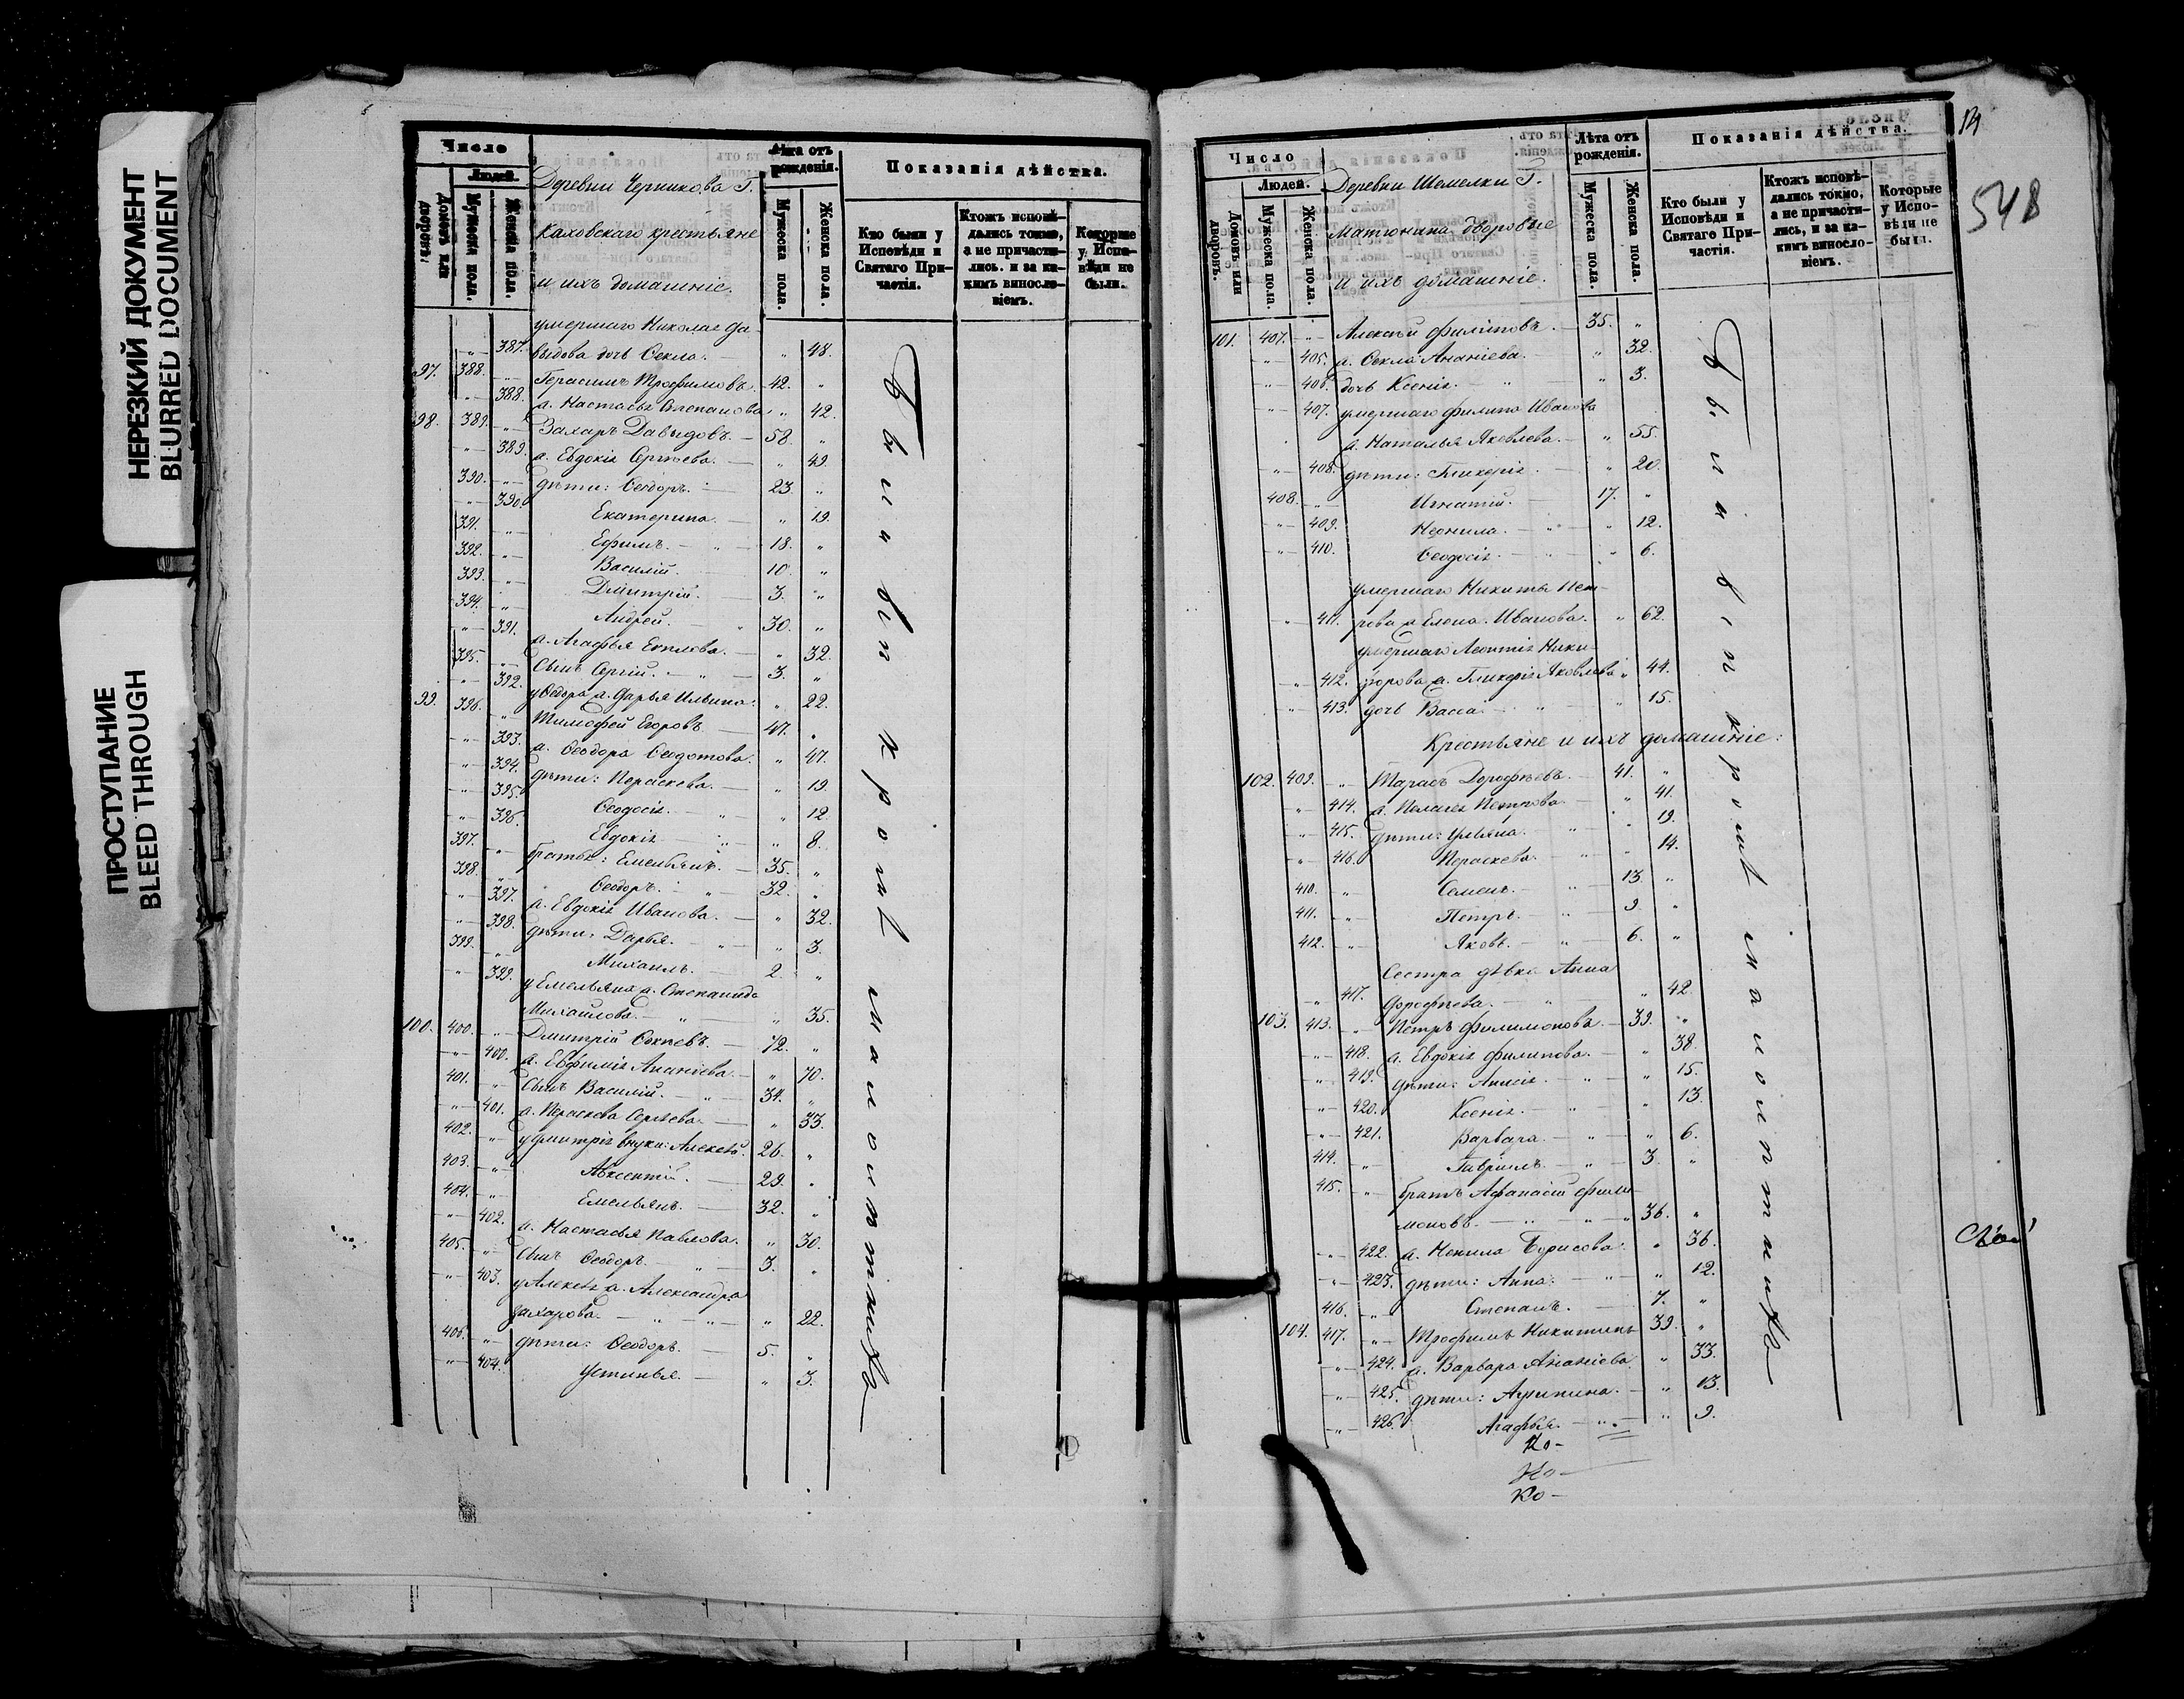 НЕРЕЗКИЙ ДОКУМЕНТ
BLURRED DOCUMENT
ПРОСТУПАНИЕ
BLEED THROUGH
Число
Людей.
Домовъ или дворовъ.
Мужеска пола.
Женска пола.
Деревни Черникова Г.
Каховскаго крестьяне
и ихъ домашніе.
Лѣта отъ рожденія.
Мужеска пола.
Женска пола.
Показанія дѣйства.
Кто были у Исповѣди и Святаго Причастія.
Ктожъ исповѣдались токмо, а не причастились. и за какимъ винословіемъ.
Которые у Исповѣди не были.
умершаго Николая Да-
"— 387. выдова дочь Ѳекла. — " 48.
97. 388. "— Герасимъ Трофимовъ. 42. "
"— 388. ж. Настасья Степанова. " 42.
98. 389. "— Захаръ Давыдовъ. — 58. "
"— 389. ж. Евдокія Сергѣева. — " 49.
390. "— дѣти: Ѳеодоръ. — 23. "
"— 390. Екатерина. — " 19.
391. "— Ефимъ. — 18. "
392. "— Василій. 10. "
393. "— Дмитрій. — 3. "
394. "— Андрей. — 30. "
"— 391. ж. Агафья — " 32.
395. "— Сынъ Сергій. — 3. "
"— 392. у Ѳеодора ж. Дарья Ильина. " 22.
99. 396. "— Тимофей Егоровъ 47. "
"— 393. ж. Ѳеодора Ѳедотова. " 47.
"— 394. дѣти: Параскева. — " 19.
"— 395. Ѳеодосія. — " 12.
"— 396. Евдокія " 8.
397. "— братья: Емельянъ. — 35. "
398. "— Ѳеодоръ. — 32. "
"— 397. ж. Евдокія Иванова. — " 32.
"— 398. дѣти: Дарья. — " 3.
399. "— Михаилъ. — 2. "
"— 399. у Емельяна ж. Степанида
Михайлова. — " 35.
100. 400. "— Дмитрій — 72. "
"— 400. ж. Евфимія Ананіева. — " 70.
401. "— Сынъ Василій. — 34. "
"— 401. ж. Параскева Сергѣева. — " 33.
402. "— у Дмитрія внуки: Алексѣй. 26. "
403. "— Авксентій. — 29. "
404. "— Емельянъ. — 32. "
"— 402. ж. Настасья Павлова. " 30.
405. "— Сынъ Ѳеодоръ. — 3. "
"— 403. у Алексѣя ж. Александра
Захарова. — " 22.
406. "— дѣти: Ѳеодоръ. — 5. "
"— 404. Устинья. — " 3.
Число
Людей.
Домовъ или дворовъ.
Мужеска пола.
Женска пола.
Деревни Шемелки Г.
Матюнина дворовые
и ихъ домашніе.
Лѣта отъ рожденія.
Мужеска пола.
Женска пола.
Показанія дѣйства.
Кто были у Исповѣди и Святаго Причастія.
Ктожъ исповѣдались токмо, а не причастились, и за какимъ винословіемъ.
Которые у Исповѣди не были.
548
101. 407. "— Алексѣй Филиповъ. — 35. "
"— 405. ж. Ѳекла Ананіева. " 32.
"— 406. дочь Ксенія. — " 3.
"— 407. умершаго Филипа Иванова
ж. Наталья Яковлева. — " 55.
"— 408. дѣти: Гликерія. — " 20.
408. "— Игнатій. — 17. "
"— 409. Неонила. — " 12.
"— 410. Ѳеодосія. — " 6.
умершаго Никиты Пет-
"— 411. рова ж. Елена Иванова. " 62.
умершаго Леонтія Ники-
"— 412. форова ж. Гликерія Яковлева " 44.
"— 413. дочь Васса. " 15.
Крестьяне и ихъ домашніе:
102. 409. "— Тарасъ Дорофѣевъ. — 41. "
"— 414. ж. Пелагея Петрова. — " 41.
"— 415. дѣти: Ульяна. " 19.
"— 416. Параскева. " 14.
410. "— Семенъ. — 13. "
411. "— Петръ. — 9. "
412. "— Яковъ. — 6. "
Сестра дѣвка Анна
"— 417. Дорофѣева. — " 42.
103. 413. "— Петръ Филимоновъ. — 39. "
"— 418. ж. Евдокія Филипова. — " 38.
"— 419. дѣти: Анисія. — " 15.
"— 420. Ксенія. — " 13.
"— 421. Варвара. — " 6.
414. "— Гавріилъ. — 3. "
415. "— братъ Афанасій Фили-
моновъ. — 36. "
"— 422. ж. Ненила Борисова. " 36.
"— 423. дѣти: Анна. — " 12.
416. "— Степанъ. — 7. "
104. 417. "— Трофимъ Никитинъ 39. "
"— 424. ж. Варвара Ананіева. " 33.
"— 425. дѣти: Акилина. — " 13.
"— 426. Агафья. — " 9.